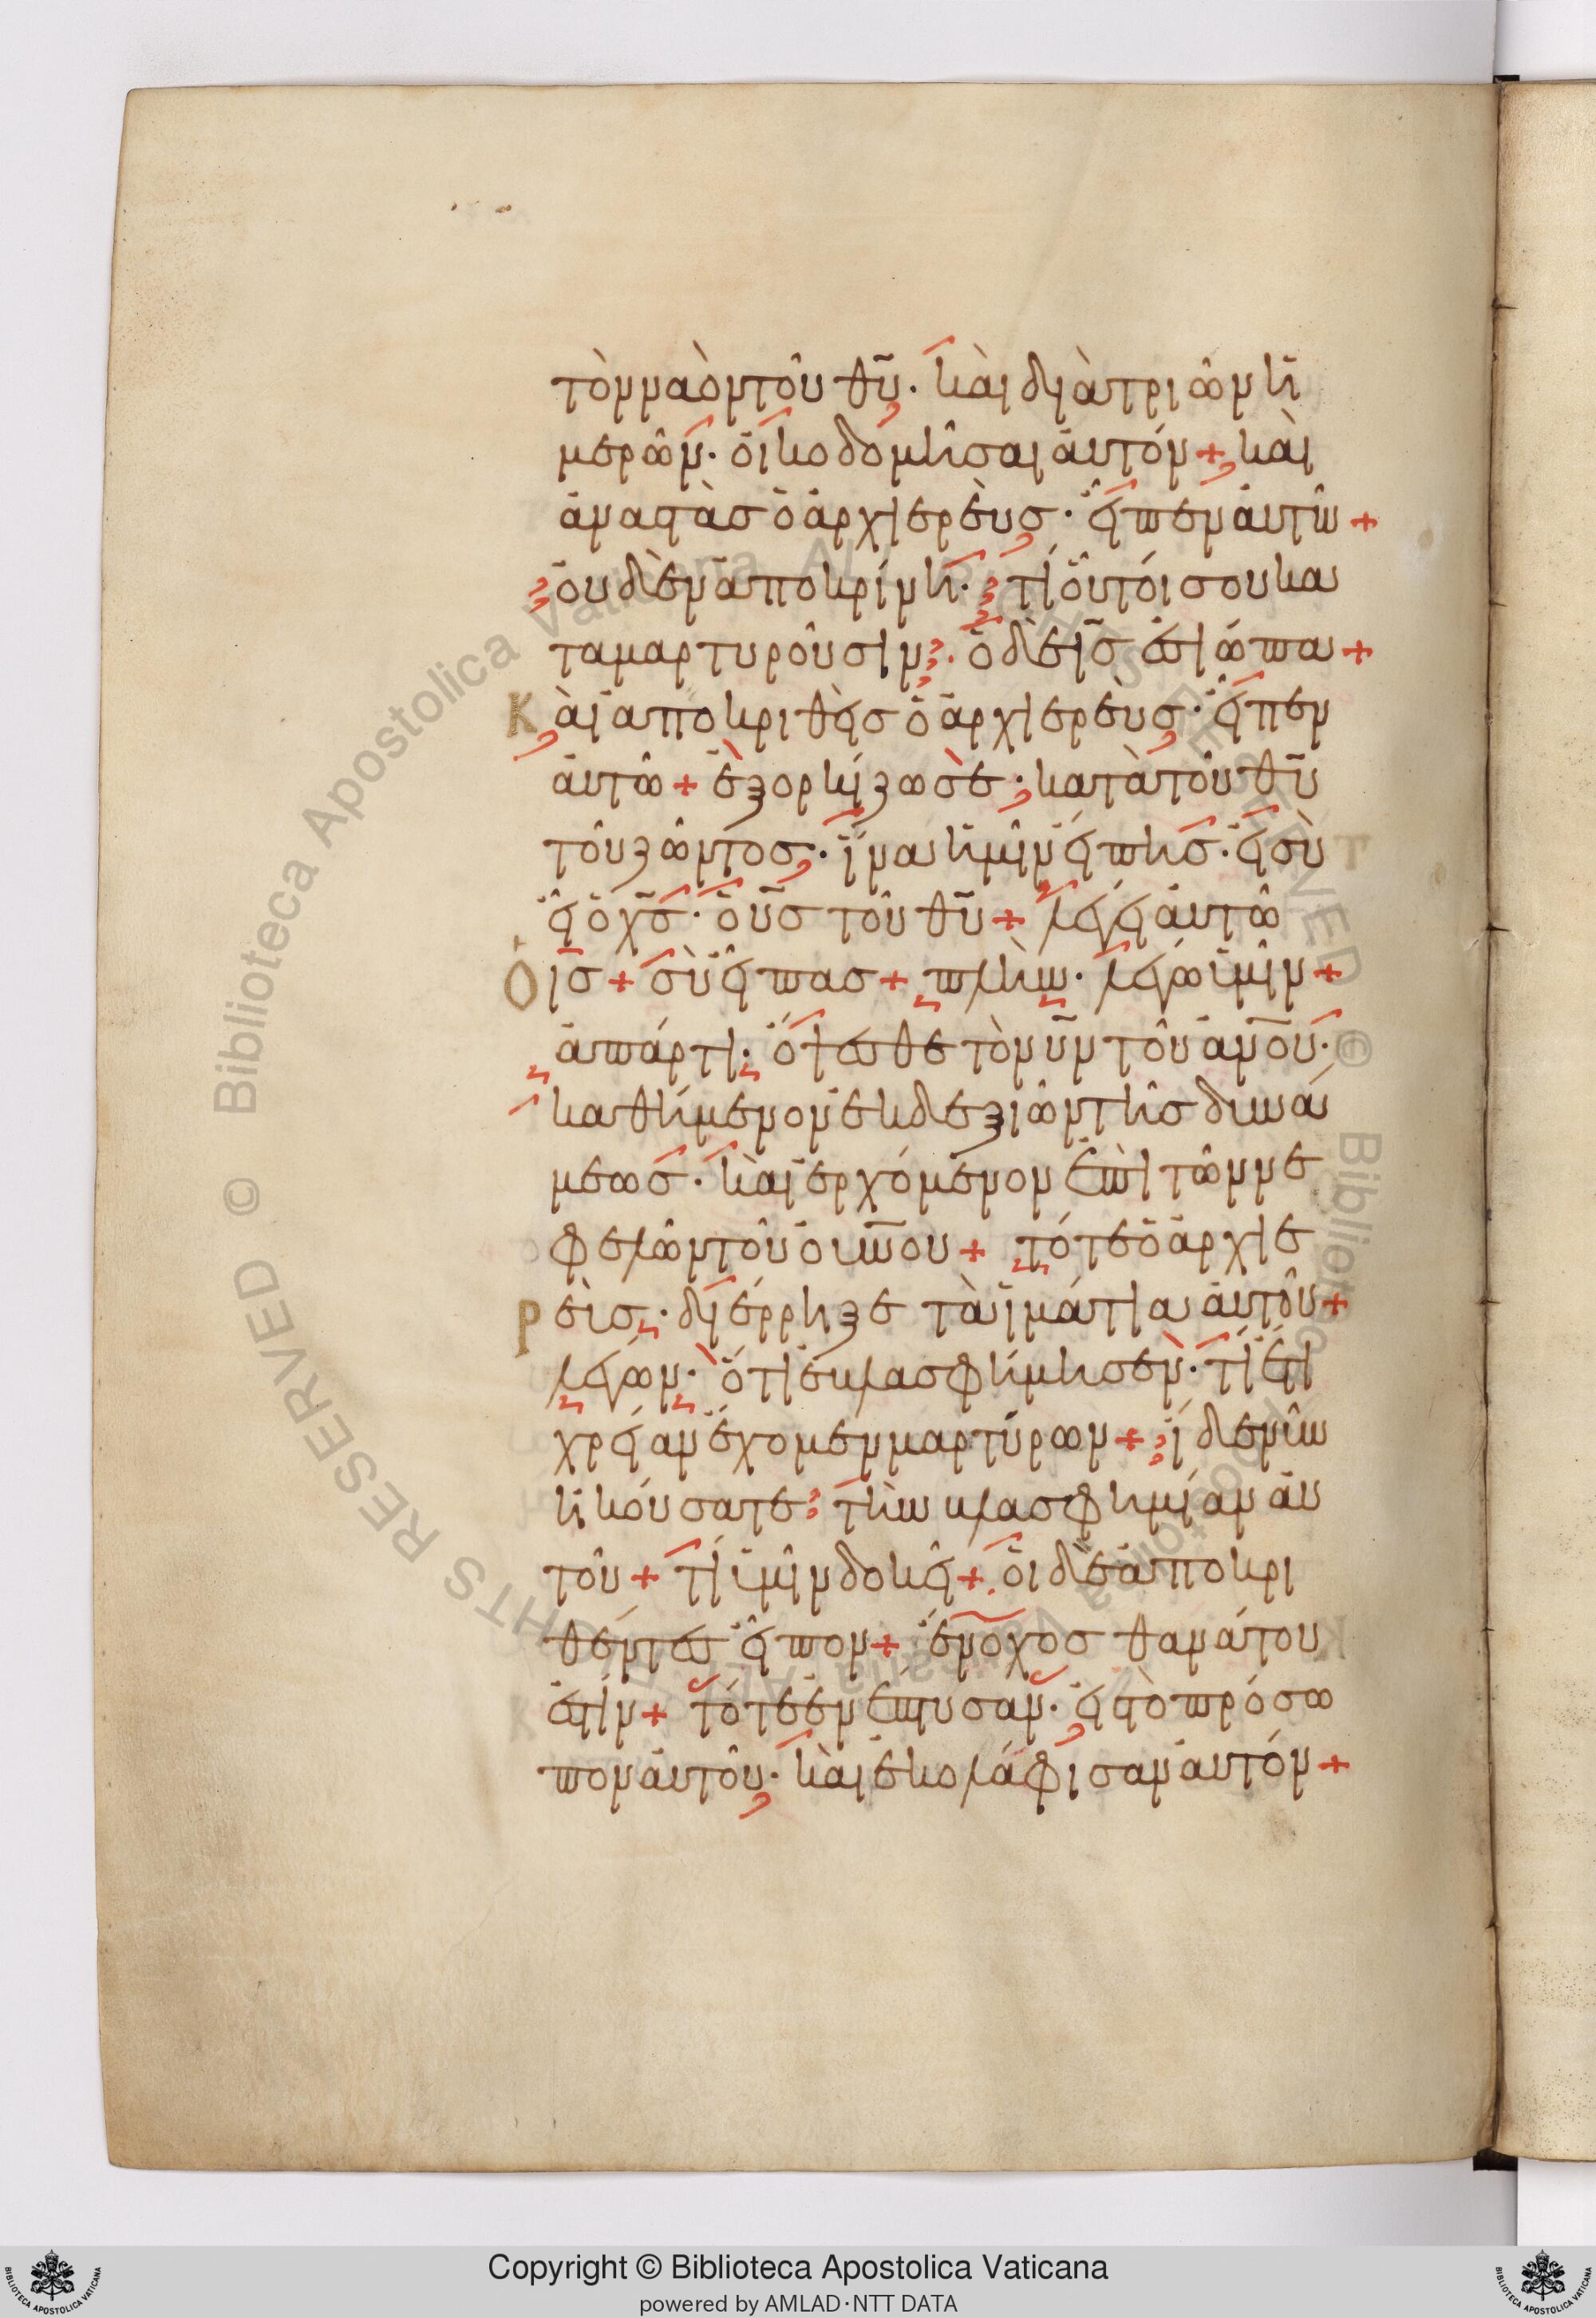 τὸν ναὸν τοῦ θῡ· καὶ διὰ τριῶν ἡ
μερῶν· οἰκοδομῆσαι αὐτόν + καὶ
ἀναστὰς ὁ ἀρχιερεὺς· εἶπεν αὐτῶ +
οὐδὲν ἀποκρίνη· τί οὗτοί σου κα
ταμαρτυροῦσιν· ὁ δὲ ις̄ ἐσιώπα +
Κὰι ἀποκριθεὶς ὁ ἀρχιερεὺς· εἶπεν
αὐτῶ + ἐξορκίζω σὲ· κατὰ τοῦ θῡ
τοῦ ζῶντος· ἵνα ἡμῖν εἴπης· εἰ σὺ
εἶ ὁ χς̄· ὁ ῡς τοῦ θῡ + λέγει αὐτῶ
Ὁ ις̄ + σὺ εἶπας + πλὴν· λέγω ὑμῖν +
ἀπάρτι· ὄψεσθε τὸν ῡν τοῦ ἀν̄ου·
καθήμενον ἐκ δεξιῶν τῆς δυνά
μεως· καὶ ἐρχόμενον ἐπὶ τῶν νε
φελῶν τοῦ οὐν̄ου + τότε ὁ ἀρχιε
ρεὶς· διέρρηξε τὰ ἱμάτια αὐτοῦ +
λέγων· ὅτι ἐβλασφήμησεν· τί ἔτι
χρείαν ἔχομεν μαρτύρων + ἴδε νῦν
ἠκούσατε τὴν βλασφημίαν αὐ
τοῦ + τί ὑμῖν δοκεῖ + οἱ δὲ ἀποκρι
θέντες εἶπον + ἔνοχος θανάτου
ἐστίν + τότε ἐνέπτυσαν· εἰς τὸ πρόσω
πον αὐτοῦ· καὶ ἐκολάφισαν αὐτόν +
Copyright © Biblioteca Apostolica Vaticana
powered by AMLAD·NTT DATA